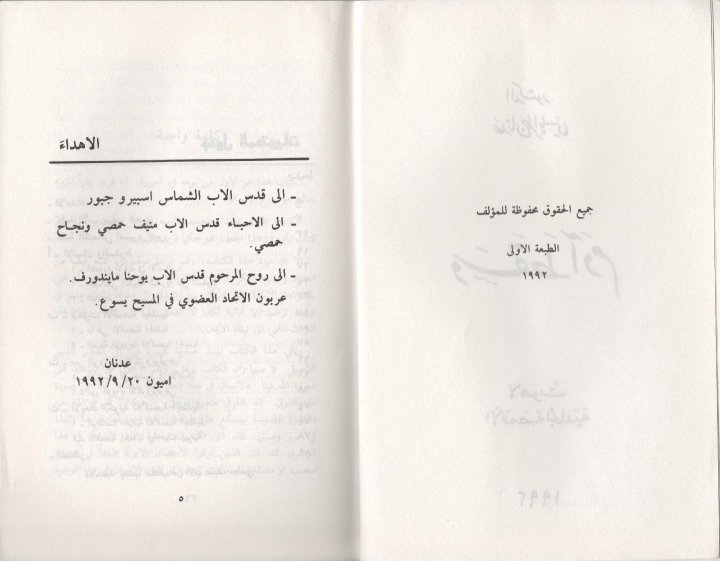 جميع الحقوق محفوظة للمؤلف
الطبعة الاولى
١٩٩٢
الاهداء
ـ الى قدس الاب الشماس اسبيرو جبور
ـ الى الاحباء قدس الاب منيف حمصي ونجاح
حمصي.
ـ الى روح المرحوم قدس الاب يوحنا مايندورف.
عربون الاتحاد العضوي في المسيح يسوع.
عدنان
اميون ٢٠/٩/١٩٩٢
٥